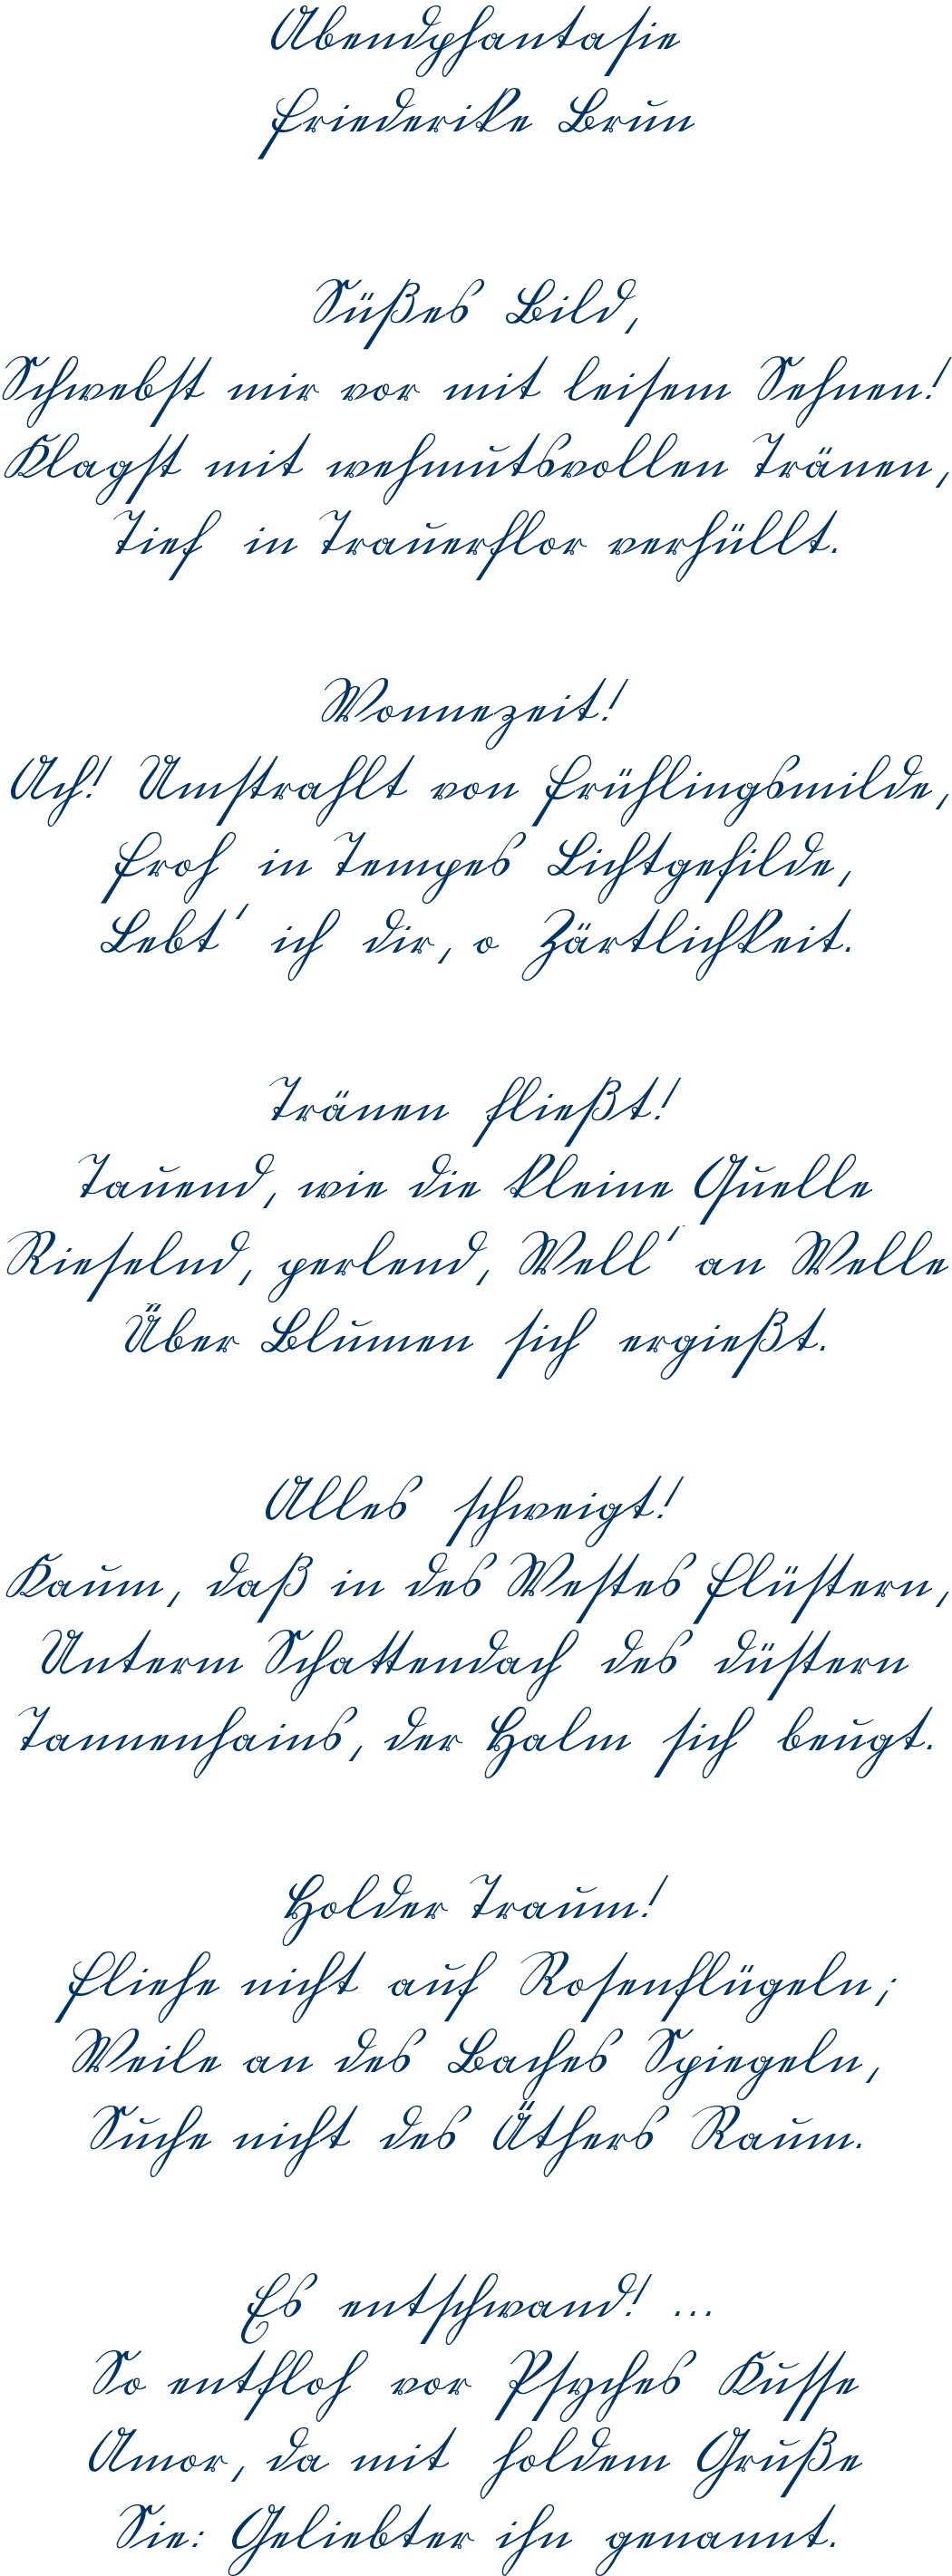 Abendphantasie
Friederike Brun
Süßes Bild,
Schwebst mir vor mit leisem Sehnen!
Klagst mit wehmutsvollen Tränen,
Tief in Trauerflor verhüllt.
Wonnezeit!
Ach! Umstrahlt von Frühlingsmilde,
Froh in Tempes Lichtgefilde,
Lebt' ich dir, o Zärtlichkeit.
Tränen fließt!
Tauend, wie die kleine Quelle
Rieselnd, perlend, Well' an Welle
Über Blumen sich ergießt.
Alles schweigt!
Kaum, daß in des Westes Flüstern,
Unterm Schattendach des düstern
Tannenhains, der Halm sich beugt.
Holder Traum!
Fliehe nicht auf Rosenflügeln;
Weile an des Baches Spiegeln,
Suche nicht des Äthers Raum.
Es entschwand! ...
So entfloh vor Psyches Kusse
Amor, da mit holdem Gruße
Sie: Geliebter ihn genannt.